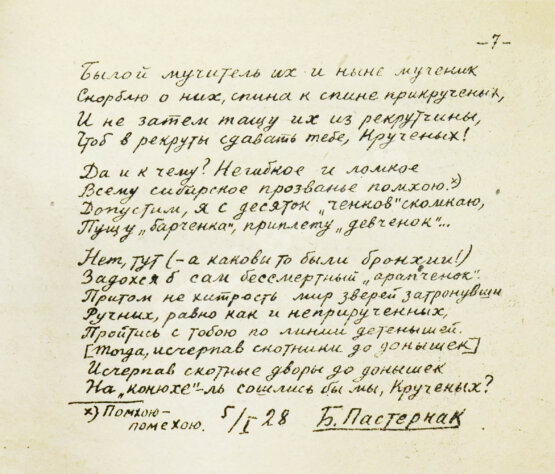 -7-
Былой мучитель их и ныне мученик
Скорблю о них, спина к спине прикрученых,
И не затем тащу их из рекрутчины,
Чтоб в рекруты сдавать тебе, Крученых!
Да и к чему? Негибное и ломкое
Всему сибирское прозванье помхою.х)
Допустим, я с десяток „ченков" скомкаю,
Пущу „барченка", приплету „девченок"...
Нет, тут (-а каковы то были бронхии!)
Задохся б сам бессмертный „арапченок".
Притом не хитрость мир зверей затронувши
Ручных, равно как и неприрученных,
Пройтись с тобою по линии детенышей.
[Тогда, исчерпав скотники до донышек]
Исчерпав скотные дворы до донышек
На „конюхе"-ль сошлись бы мы, Крученых?
х) Помхою-
помехою.
5/I 28
Б. Пастернак